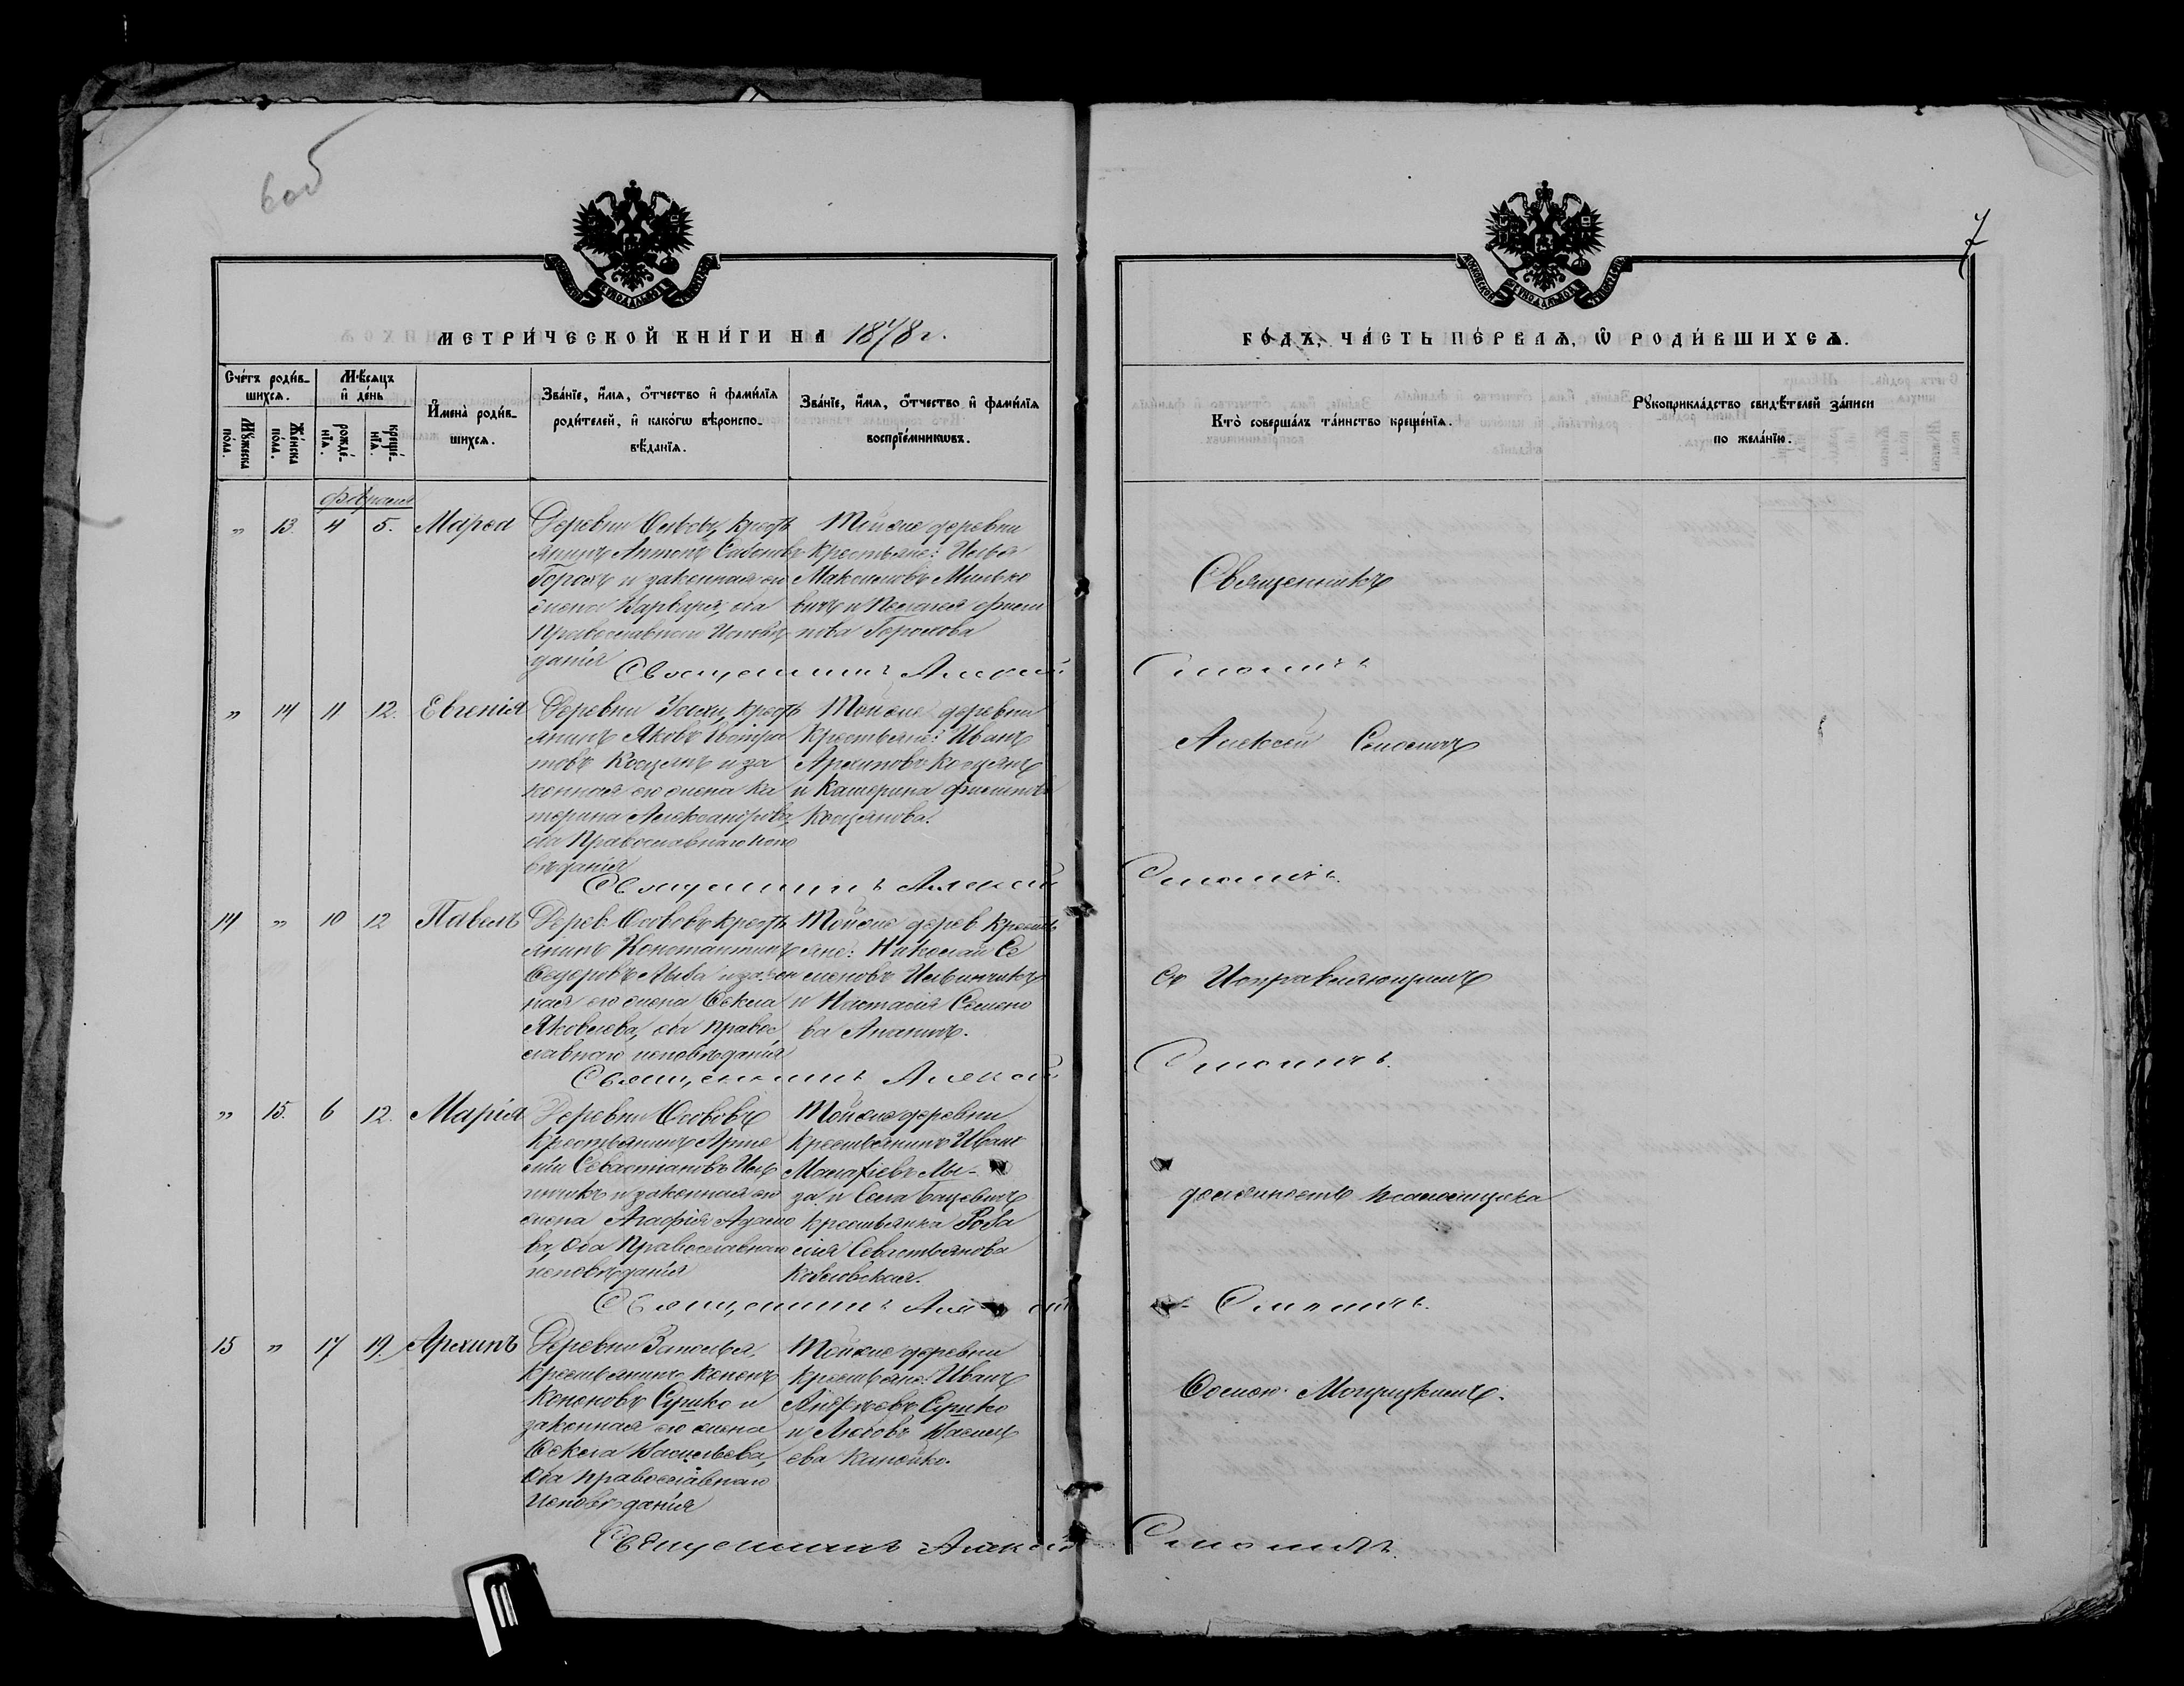 6 об
7
МЕТРИ́ЧЕСКОЙ КНИ́ГИ НА 1878 г.
ГО́ДЪ, ЧА́СТЬ ПЕ́РВАѦ, Ѡ РОДИ́ВШИХСѦ.
Сче́тъ роди́в-
шихсѧ.
Мѣ́сяцъ
и҆ де́нь
Мꙋ́жеска
по́ла.
Же́нска
по́ла.
рожде́-
нїѧ.
креще́-
нїѧ.
И҆мена̀ роди́в-
шихсѧ.
Зва́нїе, и҆́мѧ, ѻ҆́тчество и҆ фами́лїѧ
роди́телей, и҆ како́гѡ вѣроиспо-
вѣ́данїѧ.
Зва́нїе, и҆́мѧ, ѻ҆́тчество и҆ фами́лїѧ
воспрїе́мникѡвъ.
Кто̀ соверша́лъ та́инство креще́нїѧ.
Рꙋкоприкла́дство свидѣ́телей за́писи
по жела́нїю.
Февраля
" 13. 4 5. Марѳа
Деревни Осовъ, кресть
янинъ Антонъ
Горохъ и законная его
жена Варвара, оба
Православнаго Исповѣ
данія
Тойже деревни
крестьяне: Илья
Максимовъ Минько
вичъ и Пелагея Фили
пова Горохова
Священникъ Алексѣй Смоличъ
Священникъ
" 14 11 12. Евгенія
Деревни кресть
янинъ Яковъ
товъ Кощенъ и за
конная его жена Ка
терина Александрова,
оба Православнаго испо
вѣданія
Тойже деревни
Крестьяне: Иванъ
Архиповъ
и Катерина Филипова
Священникъ Алексѣй Смоличъ.
Алексѣй Смоличъ
14 " 10 12 Павелъ
Дерев. Осововъ кресть
янинъ Константинъ
Ѳедоровъ Лыза и закон
ная его жена Ѳекла
Яковлева, оба правос
лавнаго исповѣданія
Тойже дерев. крестья
яне: Николай Се
меновъ Ильинчикъ
и Настасія Семено
ва
Священникъ Алексѣй Смоличъ.
съ Исправляющимъ
" 15. 6 12. Марія
Деревни Осововъ
Крестьянинъ Арте
мій Севастіановъ Иль
инчикъ и законная его
жена Агафія Адамо
ва, оба Православнаго
исповѣданія
Тойже деревни
крестьянинъ Иванъ
Малахіевъ Лы-
за и Села Бацевичъ
крестьянка
сія Севастьянова
Козловская.
Священникъ Алексѣй Смоличъ.
должность псаломщика
15 " 17 19. Архипъ
Деревни Заполья,
крестьянинъ Кононъ
Кононовъ Сушко и
законная его жена
Ѳекла Васильева,
оба православнаго
Исповѣданія
Тойже деревни
крестьяне: Иванъ
Андреевъ Сушко
и Любовъ Василь
ева
Священникъ Алексѣй Смоличъ.
Ѳомою